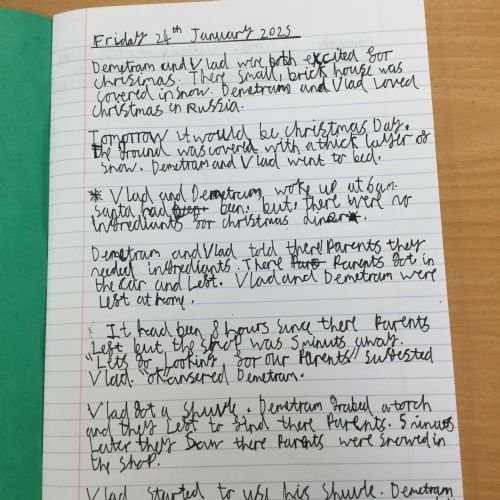 Friday 24th January 2025
Demetram and Vlad were both excited for
christmas. There small, brick house was
covered in snow. Demetram and Vlad loved
christmas in Russia.
Tomorrow it would be christmas Day.
the ground was covered with a thick layer of
snow. Demetram and Vlad went to bed.
* Vlad and Demetram woke up at 6am.
Santa had been. but, there were no
ingrediants for christmas diner*.
Demetram and Vlad told there Parents they
needed ingrediants. There Parents Got in
the car and Left. Vlad and Demetram were
Left at home.
It had been 8 hours since there Parents
Left but the shop was 5 minuts away.
"Lets Go Looking for our Parents" suggested
Vlad. "ok" ansered Demetram.
Vlad Got a Shuvle. Demetram Grabed a torch
and they Left to find there Parents. 5 minuts
Later they Saw there Parents were snowed in
the shop.
Vlad started to use his Shuvle. Demetram